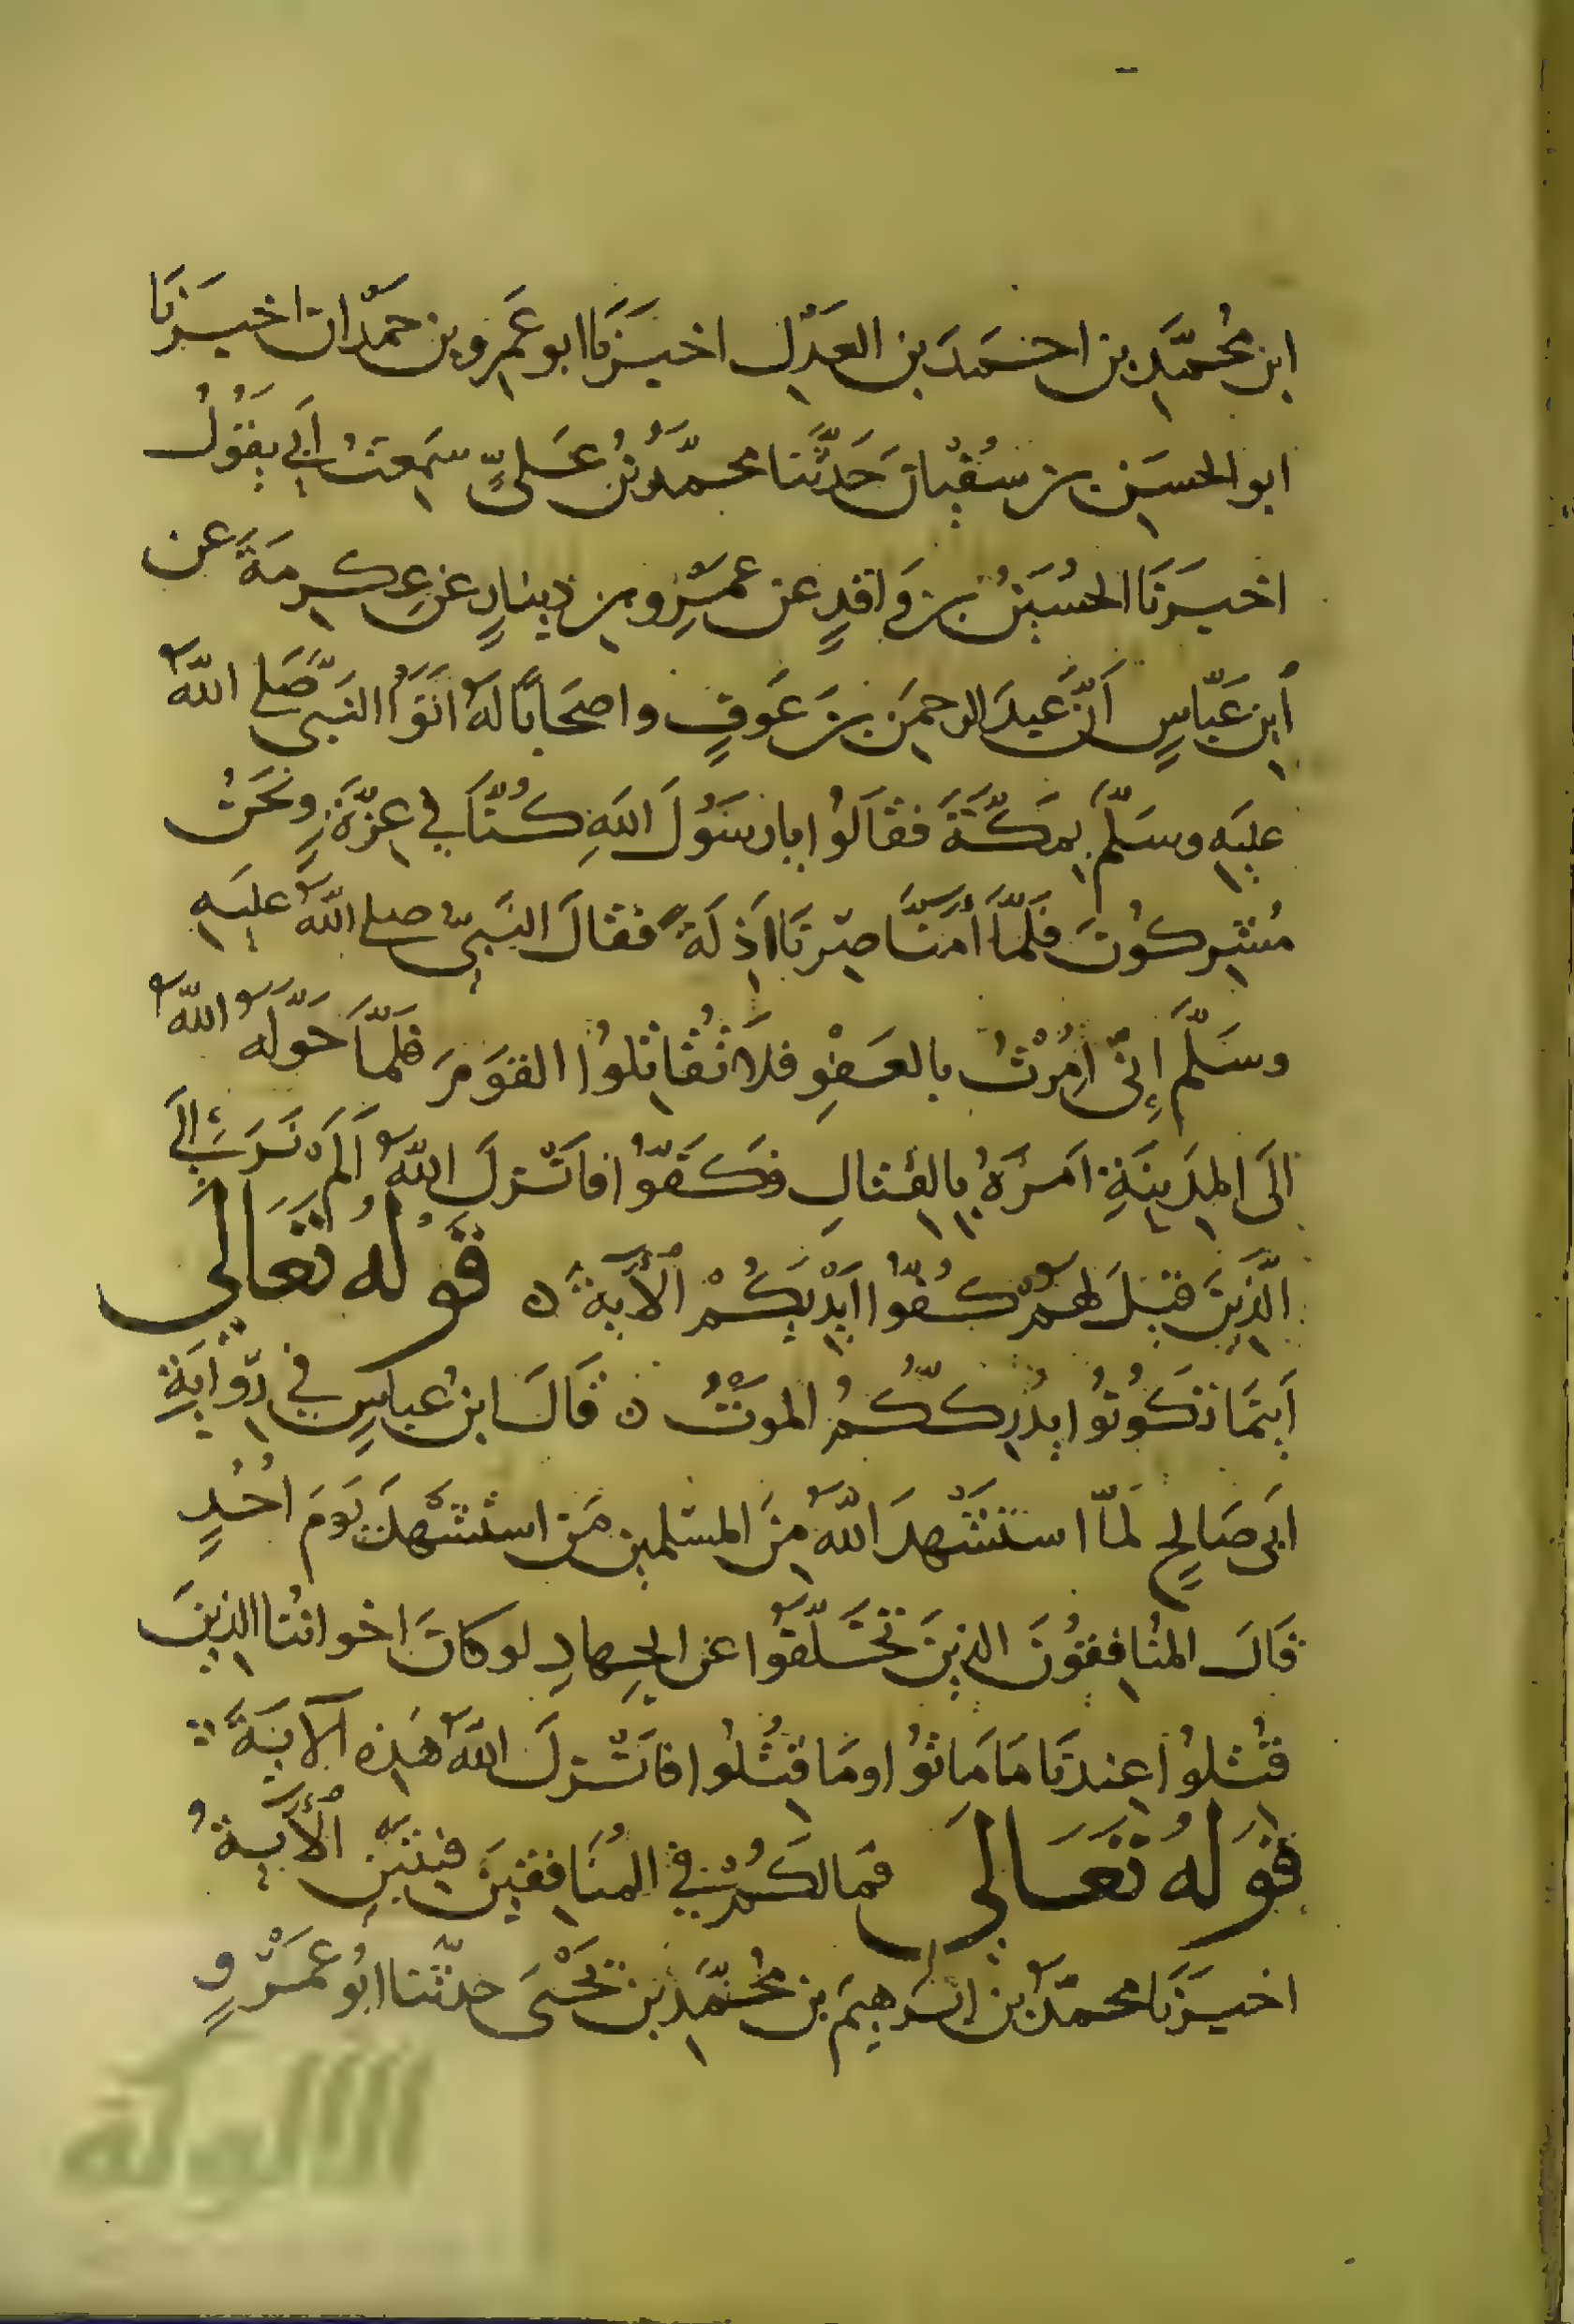 ابن مُحمَّدِ بن احمَدَ بن العَدْلِ اخبَرَنَا ابو عَمرِو بن حَمدَان اخبَرَنا
ابو الحسَين بن سُفْيان حَدَّثَنا محمَّدُ بنُ عَلىٍّ سَمِعتُ أَبِي يقُولُ
اخبَرَنَا الحُسَينُ بن وَاقدٍ عن عمْرِو بن دِينارٍ عن عِكرِمَةَ عن
أبن عَبّاسٍ أنَّ عَبدَ الرحمَنِ بنَ عَوفٍ واصحَابًا لَهُ اتَوُا النَبىَّ صَلى اللهُ
عليَهِ وسَلّمَ بِمَكَّةَ فقَالُوا يا رسُولَ اللهِ كُنّا في عِزّةٍ ونَحَنُ
مُشرِكُونَ فلَمّا أمَنّا صِرنَا اَذِلَةً فقالَ النَبيُّ صلى اللهُ عليَهِ
وسَلّمَ إنّى اُمِرْتُ بالعَفْوِ فلا تُقاتِلوُا القَومَ فلَمّا حَوّلَهُ اللهُ
الَى المِدَينَةِ امَرَهُ بِالقِتالِ فكَفّوُا فانَزلَ اللهُ اَلم تَرَ إلَى
الّذِينَ قِيلَ لهُمْ كُفّوُا اَيْدِيَكُمْ الأيةَ ن قَولُهُ تَعَالَى
اَينَمَا تَكوُنوُا يدُرِككُّمُ الموَتُ ن قَالَ ابنُ عباسٍ في رِوَايَةِ
ابَى صَالحٍ لمَّا استَشْهدَ اللهُ مِنَ المسلمِين مَن استُشهدَ يَومَ اُحُدٍ
قَالَ المُنافِقوُنَ الذِينَ تَخَلّفَوُا عن الجِهادِ لو كانَ اخواننُا الذِينَ
قُتِلوُا عِندَنا مَا مَاتوُا ومَا قُتِلوُا فانَزلَ اللهُ هَذِه الآيَةَ
قَولُهُ تَعَالى فمَا لكُمْ في المُنَافِقِينَ فِئَتَينِ الأيةُ
اخبَرَنَا محمدُ بن ابرَهِيمَ بن مُحمَّدِ بن يَحْيَى حدثَّنا ابوُ عَمْرٍو